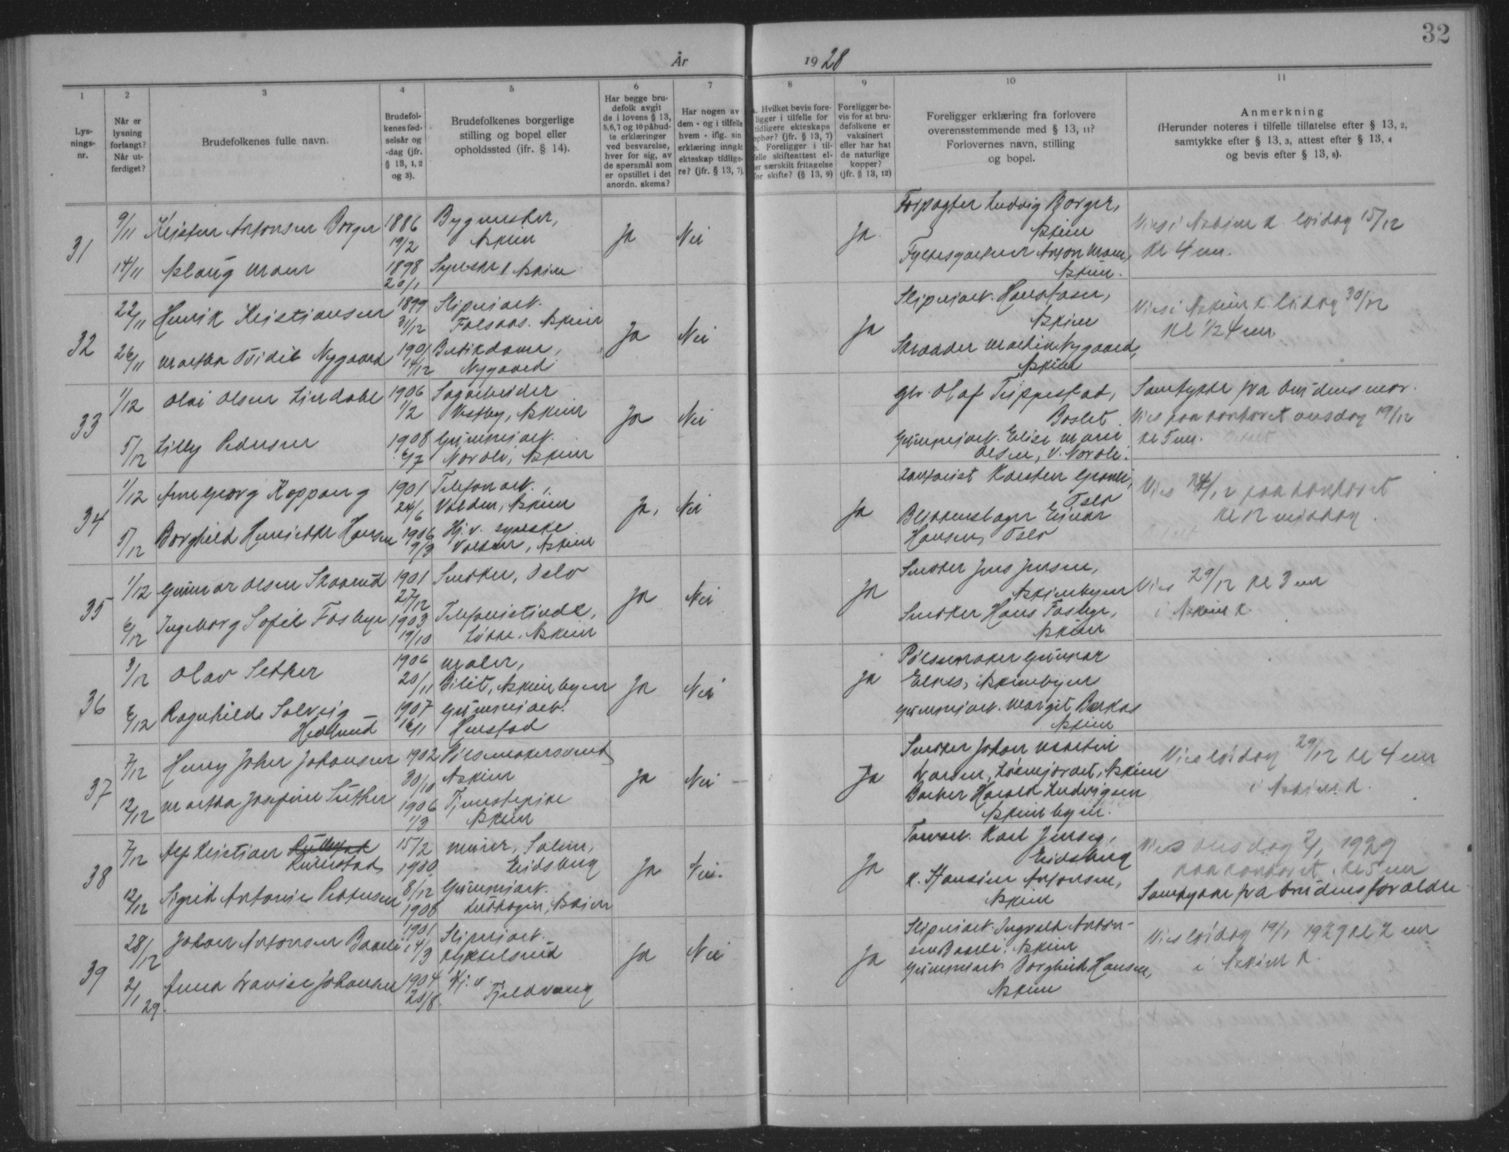 32
År 1928
1 2 3 4 5 6 7 8 9 10 11
Lys-
nings-
nr.
Når er
lysning
forlangt?
Når ut-
ferdiget?
Brudefolkenes fulle navn.
Brudefol-
kenes fød-
selsår og
-dag (jfr.
§ 13, 1, 2
og 3).
Brudefolkenes borgerlige
stilling og bopel eller
opholdssted (ifr. § 14).
Har begge bru-
defolk avgit
de i lovens § 13,
5,6,7 og 10 påbud-
te erklæringer
ved besvarelse,
hver for sig, av
de spørsmål som
er opstillet i det
anordn. skema?
Har nogen av
dem - og i tilfelle
hvem - iflg. sin
erklæring inngått
ekteskap tidlige-
re? (jfr. § 13, 7).
Hvilket bevis fore-
ligger i tilfelle for
tidligere ekteskaps
ophør? (jfr. § 13, 7)
Foreligger i til-
felle skifteattest el-
ler særskilt fritagelse
for skifte? (§ 13, 9)
Foreligger be-
vis for at bru-
defolkene er
vaksinert
eller har hat
de naturlige
kopper?
(jfr. § 13, 12)
Foreligger erklæring fra forlovere
overensstemmende med § 13, 11?
Forlovernes navn, stilling
og bopel.
Anmerkning
(Herunder noteres i tilfelle tillatelse efter § 13, 2,
samtykke efter § 13, 3, attest efter § 13, 4
og bevis efter § 13, 8).
31
9/11 Kristen Antonsen Borger 1886 19/2 Bygmester,
Askim
Ja Nei Ja
Forpagter Ludvig Borger,
Askim
Vies i Askim K. lördag 15/12
Kl 4 em.
14/11 Aslaug Moen 1898 Syerske, Askim
Anton Moen,
Askim.
32
22/11 Henrik Kristiansen 1899 31/12 Sliperiarb.
Askim
Ja Nei Ja
Askim
Vies i Askim K. lördag 30/12
Kl 1/2 4 em
26/11 Martha Ovidie Nygaard 1901 14/12 Butikdame,
Nygaard
Skrædder Martin Nygaard,
Askim
33
1/12 Olai Olsen Lindahl 1906 1/2 Sagarbeider
Vestby, Askim
Ja Nei
Gbr. Olaf Trippestad,
Samtykke fra brudens mor.
Vies paa kontoret onsdag 19/12
Kl 5 em.
5/12 Lilly Pedersen 1908 6/7 Gummiarb.
Askim
Gummiarb. Elise Marie
Olsen,
34
1/12 Arne Georg Koppang 1901 24/6 Telefonarb.,
Volden, Askim
Ja, Nei Ja
Karsten
Oslo
Vies 24/12 paa kontoret
Kl 12 middag.
5/12 Borghild Henriette Hansen 1906 9/9 Hj. v. syerske
Volden, Askim
Blikkenslager Einar
Hansen, Oslo
35
1/12 Gunnar Olsen Skaarud 1901 27/12 Smöker, Oslo
Ja Nei Ja
Jens Jensen,
Askimbyen
Vies 29/12 Kl 3 em
i Askim K
6/12 Ingeborg Sofie Fosbye 1903 19/10 Telefonistinde,
Løkke, Askim
Hans Fosbye,
Askim
36
3/12 Olav Sether 1906 20/11 Maler,
Askimbyen
Ja Nei Ja
Pölsemaker Gunnar
Askimbyen
6/12 Ragnhilde Solveig
Hedlund
1907 16/1 Gummiarb.
Gummiarb. Margit
Askim
37
7/12 Henry Johen Johansen 1902 30/10 Pölsemakersvend
Askim
Ja Nei Ja
Johan Martin
Larsen, Askim
Vies lördag 29/12 Kl 4 em
i Askim K.
12/12 Martha Josefine Sæther 1906 1/3 Tjenestepike
Askim
Barber Harald Ludvigsen
Askimbyen.
38
7/12 Alf Kristian
15/2 1900 Murer,
Eidsberg
Ja Nei. Ja
Karl Jensen,
Eidsberg
Vies onsdag 2/1 1929
paa kontoret. Kl 5 em
12/12 Sigrid Antonie Pettersen 8/12 1908 Gummiarb.
Askim
Antonsen,
Askim
Samtykke fra brudens forældre
39
28/12 Johan Antonsen Baasli 1901 14/3 Sliperiarb.
Ja Nei Ja
Sliperiarb. Ingvald Anton-
sen Baasli, Askim
Vies lördag 19/1 1929 Kl 2 em
i Askim K.
2/1 29 Anna Lovise Johansen 1904 20/8 Hj. v.
Gummiarb. Borghild Hansen,
Askim